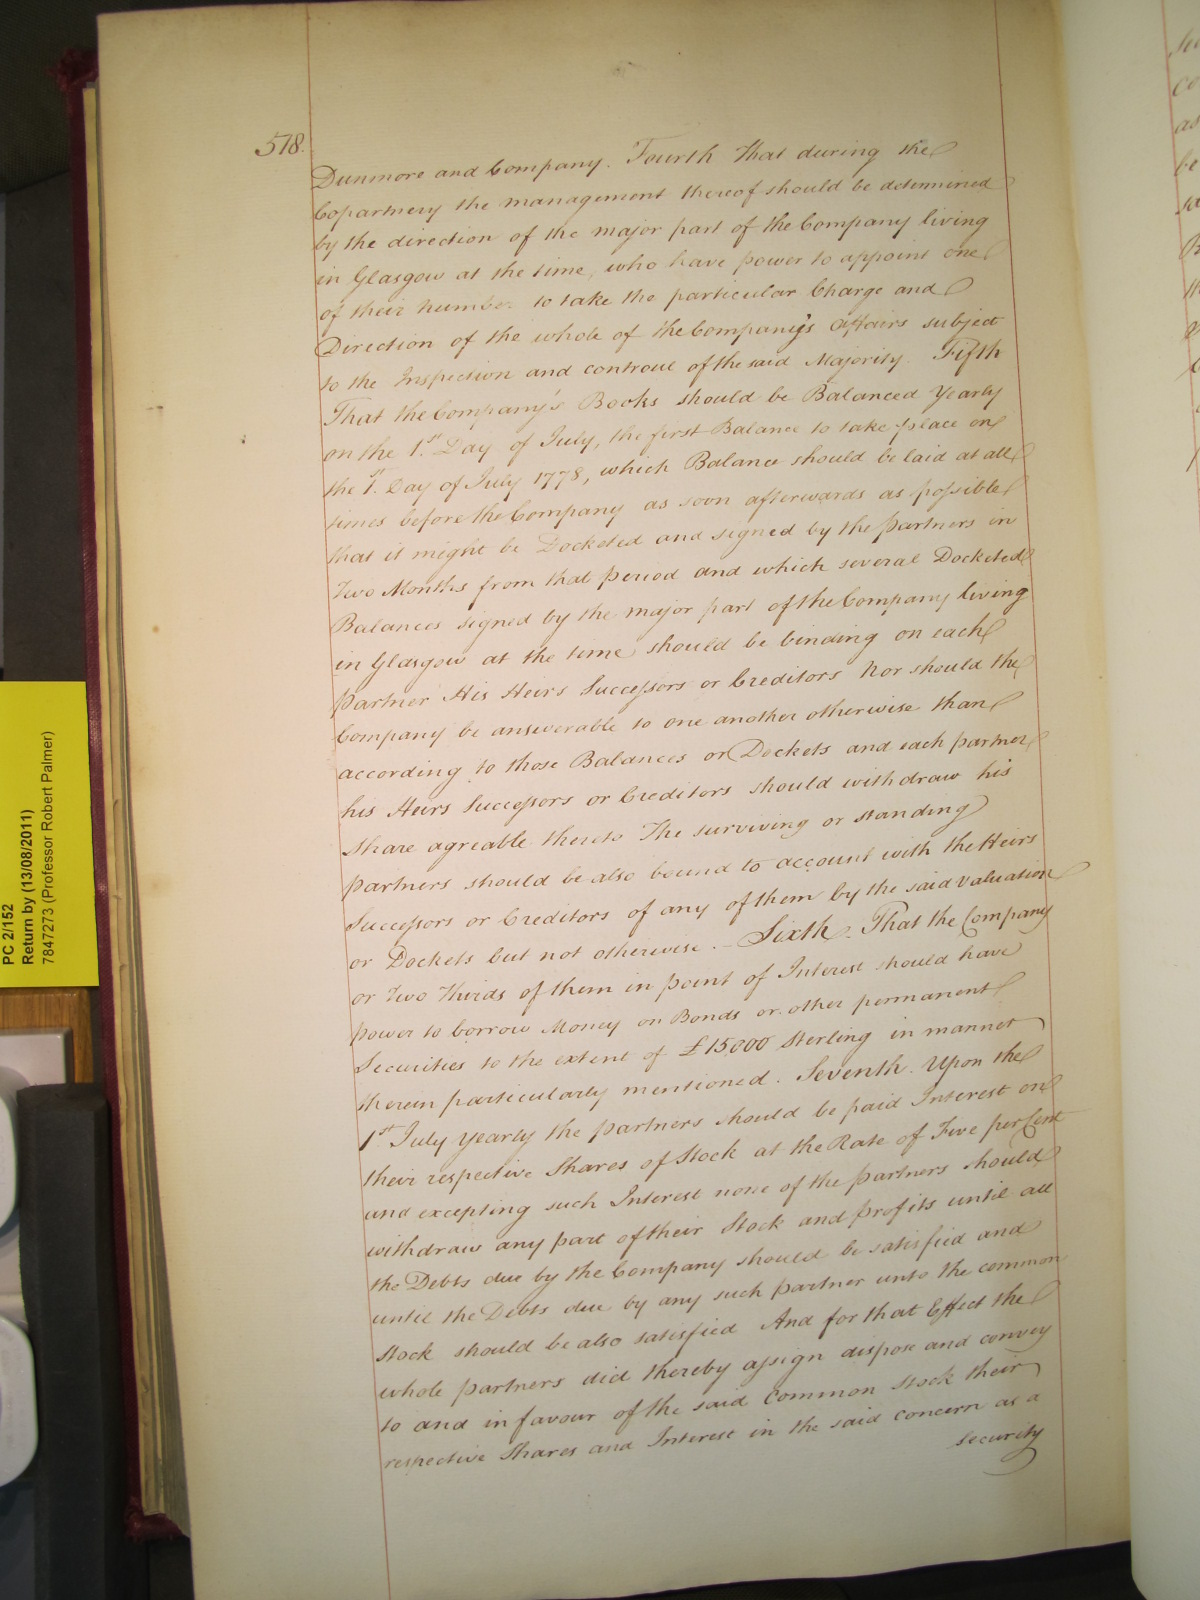 578.
Dunmore and Company. Fourth That during the
Copartnery the management thereof should be determined
by the direction of the major part of the Company living
in Glasgow at the time, who have power to appoint one
of their number to take the particular Charge and
Direction of the whole of the Company's affairs subject
to the Inspection and controul of the said Majority. Fifth
That the Company's Books should be Balanced Yearly
on the 1.st Day of July, the first Balance to take place on
the 1.st Day of July 1778, which Balance should be laid at all
times before the Company as soon afterwards as possible
that it might be Docketed and signed by the partners in
Two Months from that period and which several Docketed
Balances signed by the major part of the Company living
in Glasgow at the time should be binding on each
partner His Heirs Successors or Creditors Nor should the
Company be answerable to one another otherwise than
according to those Balances or Dockets and each partner
his Heirs Successors or Creditors should withdraw his
Share agreable thereto The surviving or standing
partners should be also bound to account with the Heirs
Successors or Creditors of any of them by the said Valuation
or Dockets but not otherwise. – Sixth. That the Company
or Two Thirds of them in point of Interest should have
power to borrow Money on Bonds or other permanent
Securities to the extent of £15,000 Sterling in manner
therein particularly mentioned. Seventh. Upon the
1st July yearly the partners should be paid Interest on
their respective Shares of Stock at the Rate of Five per Cent
and excepting such Interest none of the partners should
withdraw any part of their Stock and profits until all
the Debts due by the Company should be satisfied and
until the Debts due by any such partner unto the common
Stock should be also satisfied And for that Effect the
whole partners did thereby assign dispose and convey
to and in favour of the said Common Stock their
respective Shares and Interest in the said concern as a
security
PC 2/152
Return by (13/08/2011)
7847273 (Professor Robert Palmer)